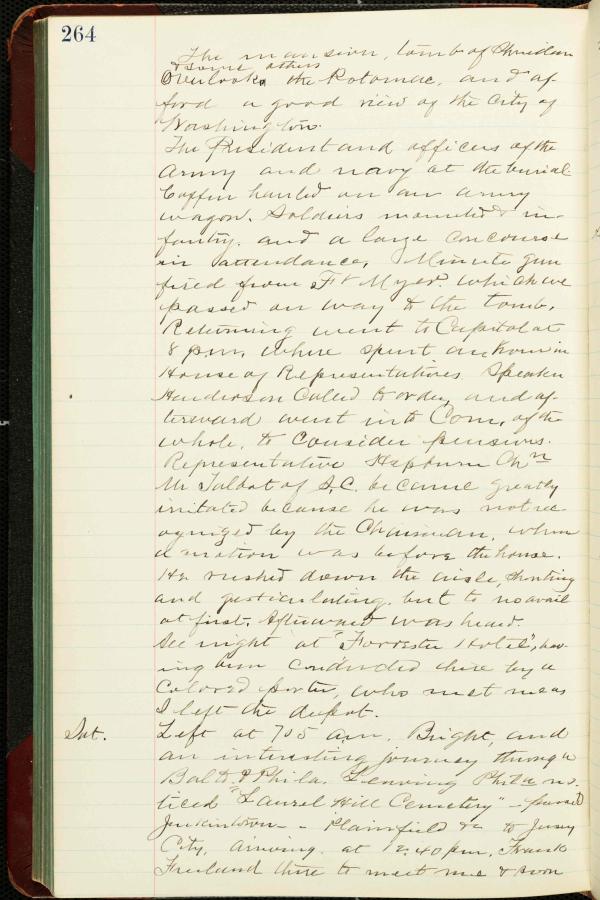 264
The mansion, tomb of Sheridan
& some others
Overlooks the Potomac, and af-
ford a good view of the City of
Washington.
The President and officers of the
Army and navy at the burial.
Coffin hauled on an army
wagon. Soldiers mounted & in-
fantry, and a large concourse
in attendance. Minute gun
fired from Ft Myer. which we
passed on way to the tomb.
Returning went to Capitol at
8 p.m. where spent an hour in
House of Representatives. Speaker
Henderson Called to order, and af-
terward went into Com. of the
whole, to Consider pensions.
Representative Hepburn Chn
Mr Talbot of S.C. became greatly
irritated because he was not rec-
ognized by the Chairman, when
a motion was before the house.
He rushed down the aisle, shouting
and gesticulating, but to no avail
at first. Afterward was heard.
All night at "Forrester Hotel", hav-
ing been conducted there by a
Colored porter, who met me as
I left the depot.
Sat. Left at 7 05 a.m. Bright, and
an interesting journey through
Balto & Phila. Leaving Phila no-
ticed "Laurel Hill Cemetery" - passed
Jenkintown - Plainfield &c to Jersey
City, arriving at 12.40 p.m. Frank
Freeland there to meet me & soon